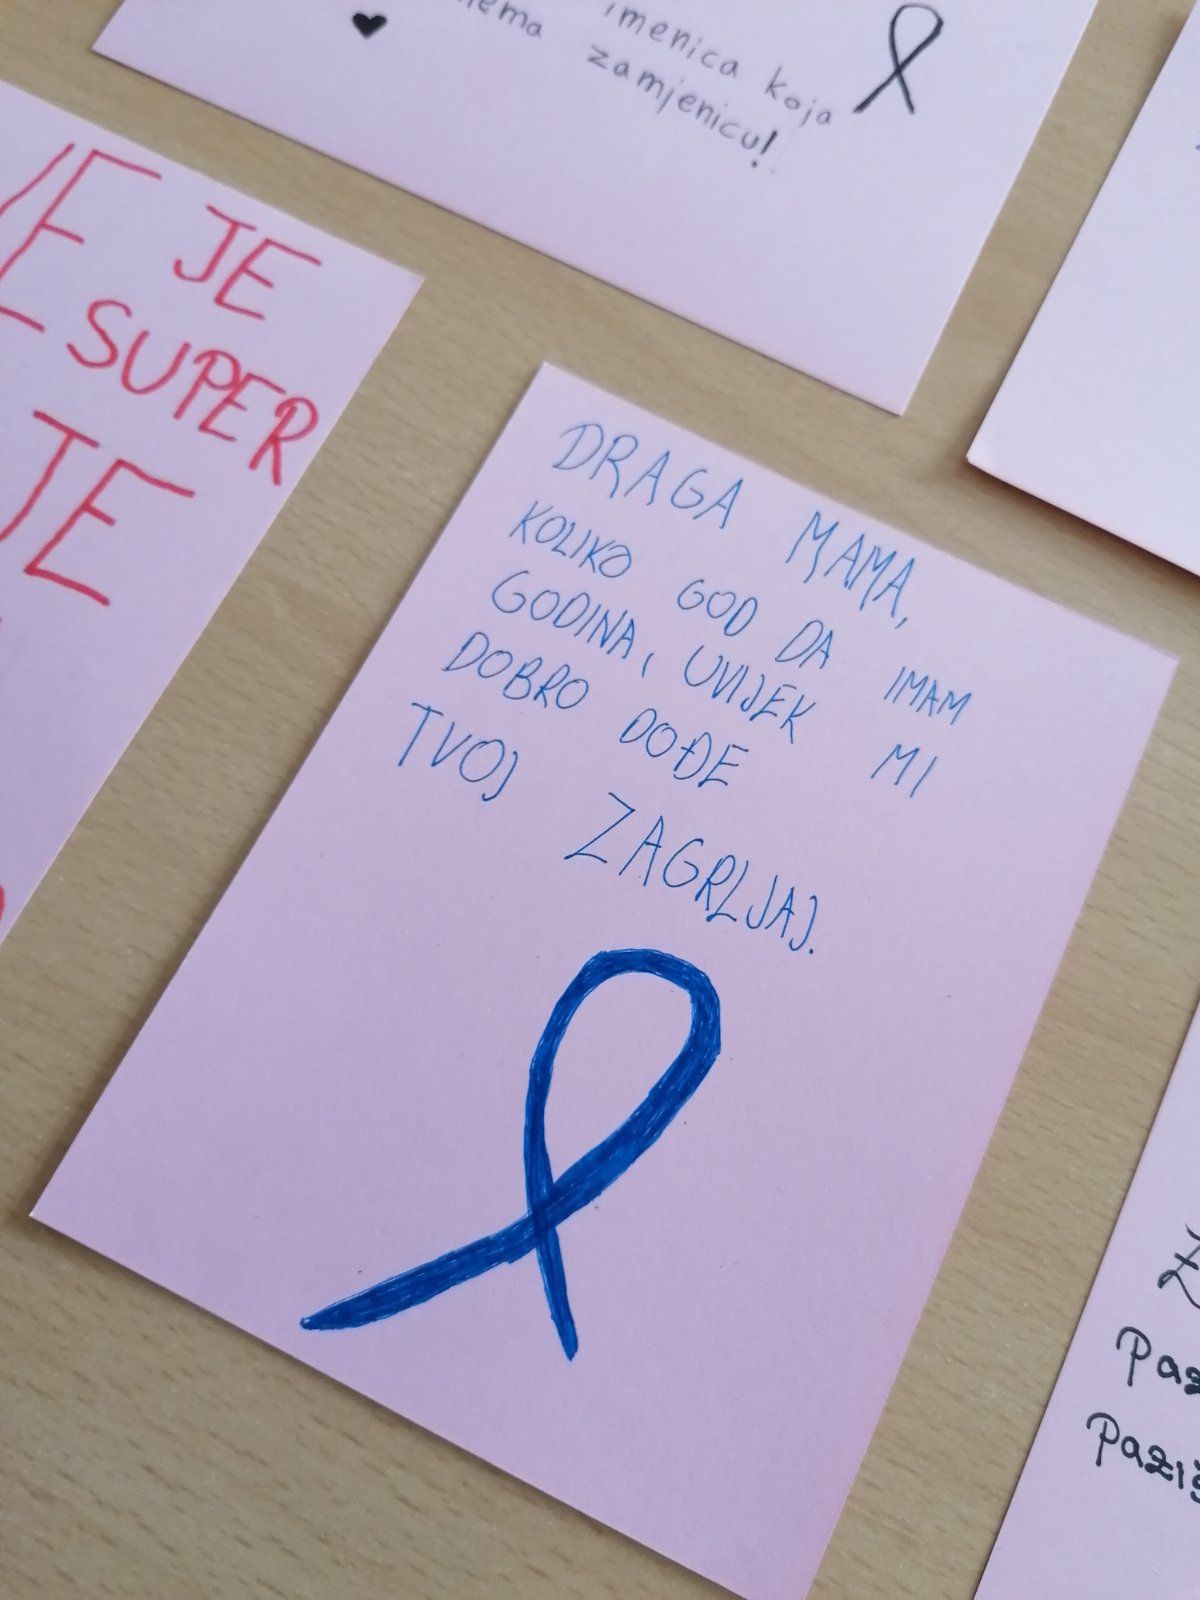 imenica koja
nema zamjenicu!
JE
SUPER
JE
DRAGA MAMA,
KOLIKO GOD DA IMAM
GODINA, UVIJEK MI
DOBRO DOĐE
TVOJ ZAGRLJAJ.